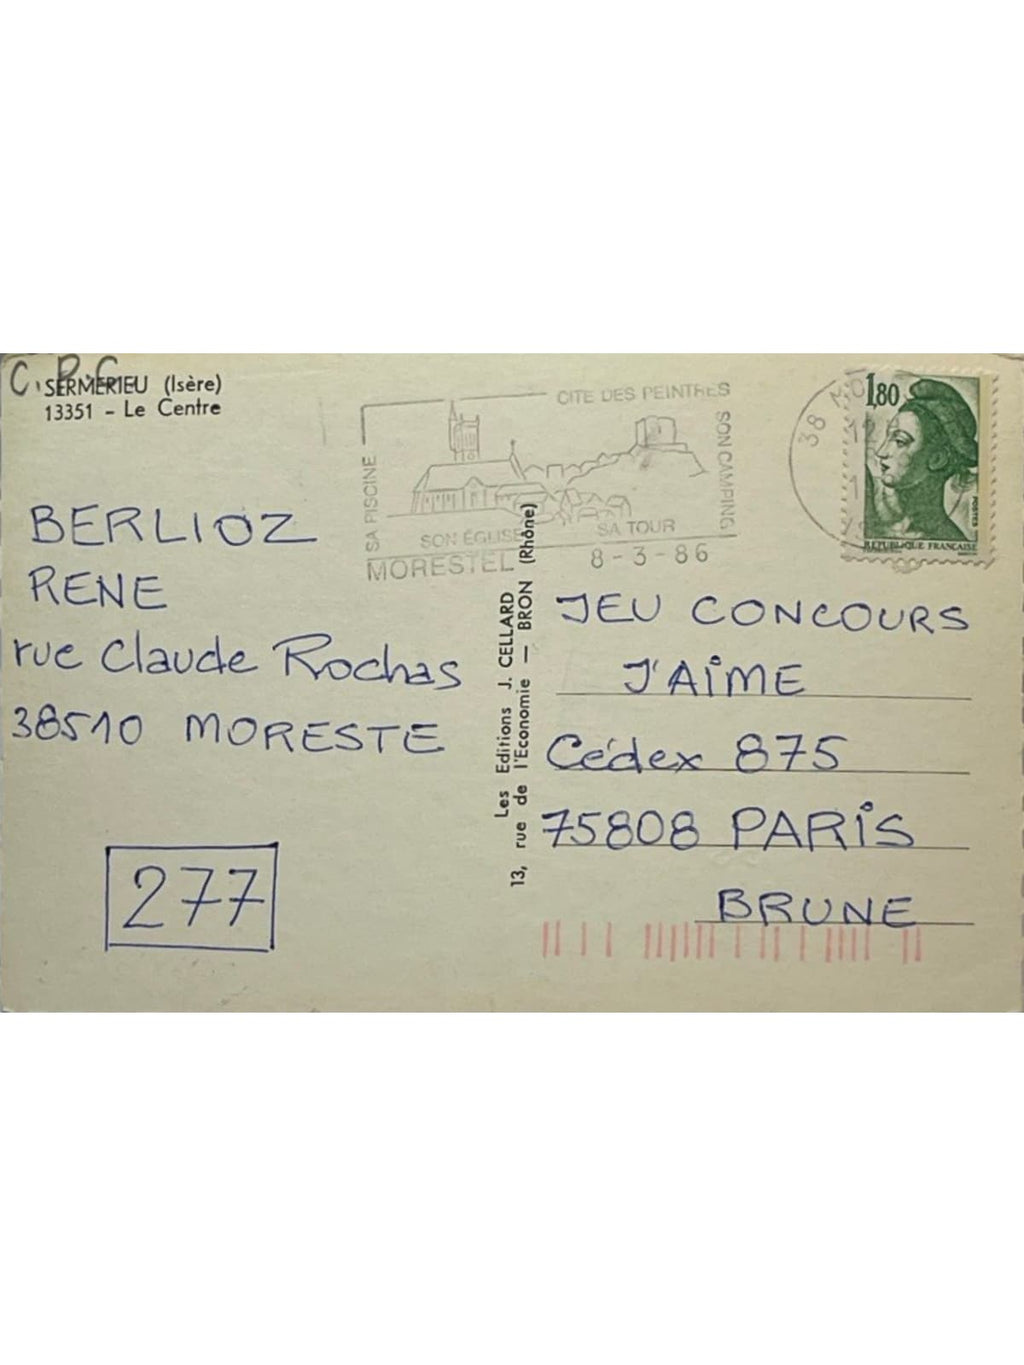 C.P.
SERMERIEU (Isère)
13351 - Le Centre
CITE DES PEINTRES
SA PISCINE
SON CAMPING
SON ÉGLISE
SA TOUR
MORESTEL
8-3-86
38 MO
1,80
POSTES
REPUBLIQUE FRANÇAISE
BERLIOZ
RENE
rue Claude Rochas
38510 MORESTE
277
Les Editions J. CELLARD
13, rue de l'Economie — BRON (Rhône)
JEU CONCOURS
J'AIME
Cédex 875
75808 PARIS
BRUNE